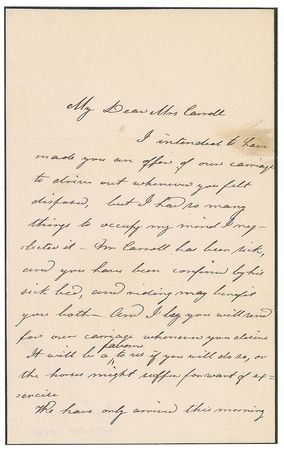 My Dear Mrs Carroll
I intended to have
made you an offer of our carriage
to drive out whenever you felt
disposed, but I had so many
things to occupy my mind I neg-
=lected it – Mr Carroll has been sick,
and you have been confined by his
sick bed, and riding may benefit
you both – And I beg you will send
for our carriage whenever you desire
It will be a favour to us if you will do so, or
the horses might suffer for want of ex=
=ercise
We have only arrived this morning